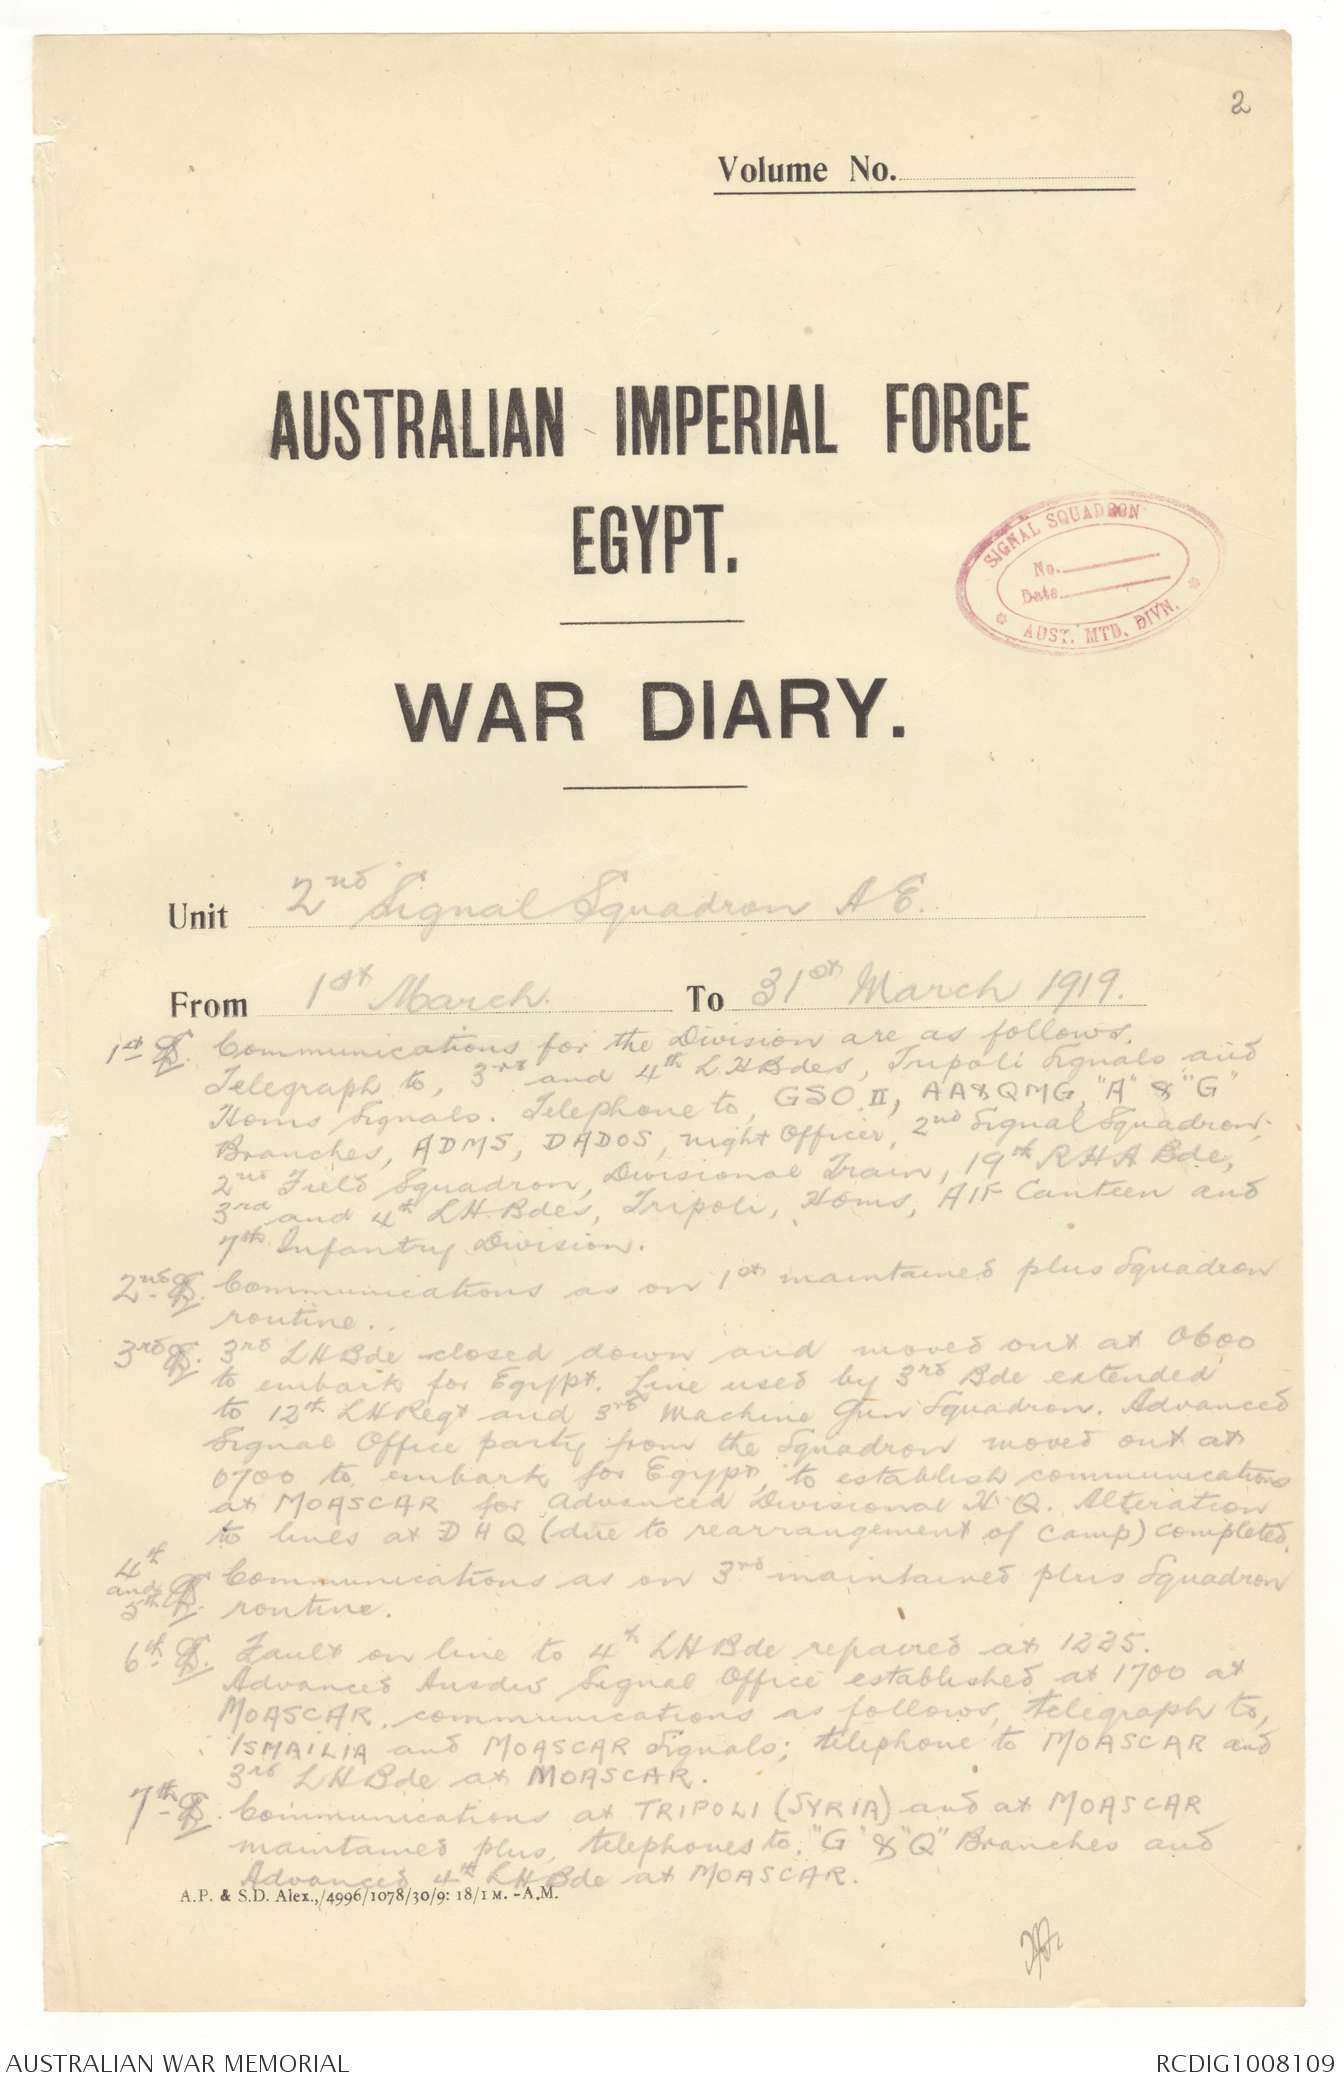 2
Volume No.
AUSTRALIAN IMPERIAL FORCE
EGYPT.
SIGNAL SQUADRON
No.
Date
AUST. MTD. DIVN.
WAR DIARY.
Unit 2nd Signal Squadron A E.
From 1st March. To 31st March 1919.
1st Communications for the Division are as follows.
Telegraph to, 3rd and 4th L H Bdes, Tripoli Signals and
Homs Signals. Telephone to, GSO II, AA&QMG, "A" & "G"
Branches, ADMS, DADOS, night Officer, 2nd Signal Squadron,
2nd Field Squadron, Divisional Train, 19th RHA Bde,
3rd and 4th L.H. Bdes, Tripoli, Homs, AIF Canteen and
7th Infantry Division.
2nd Communications as on 1st maintained plus Squadron
routine.
3rd 3rd LH Bde closed down and moved out at 0600
to embark for Egypt. Line used by 3rd Bde extended
to 12th LH Regt and 3rd Machine Gun Squadron. Advanced
Signal Office party from the Squadron moved out at
0700 to embark for Egypt, to establish communications
at MOASCAR for Advanced Divisional H Q. Alteration
to lines at D H Q (due to rearrangement of camp) completed.
4th
and Communications as on 3rd maintained plus Squadron
5th routine.
6th Fault on line to 4th LH Bde repaired at 1225.
Advanced Ausdiv Signal Office established at 1700 at
MOASCAR, communications as follows, telegraph to,
ISMAILIA and MOASCAR Signals; telephone to MOASCAR and
3rd LH Bde at MOASCAR.
7th Communications at TRIPOLI (SYRIA) and at MOASCAR
maintained plus, telephones to, "G" & "Q" Branches and
Advanced 4th LH Bde at MOASCAR.
A.P. & S.D. Alex., /4996/1078/30/9: 18/1 M. -A.M.
AUSTRALIAN WAR MEMORIAL
RCDIG1008109